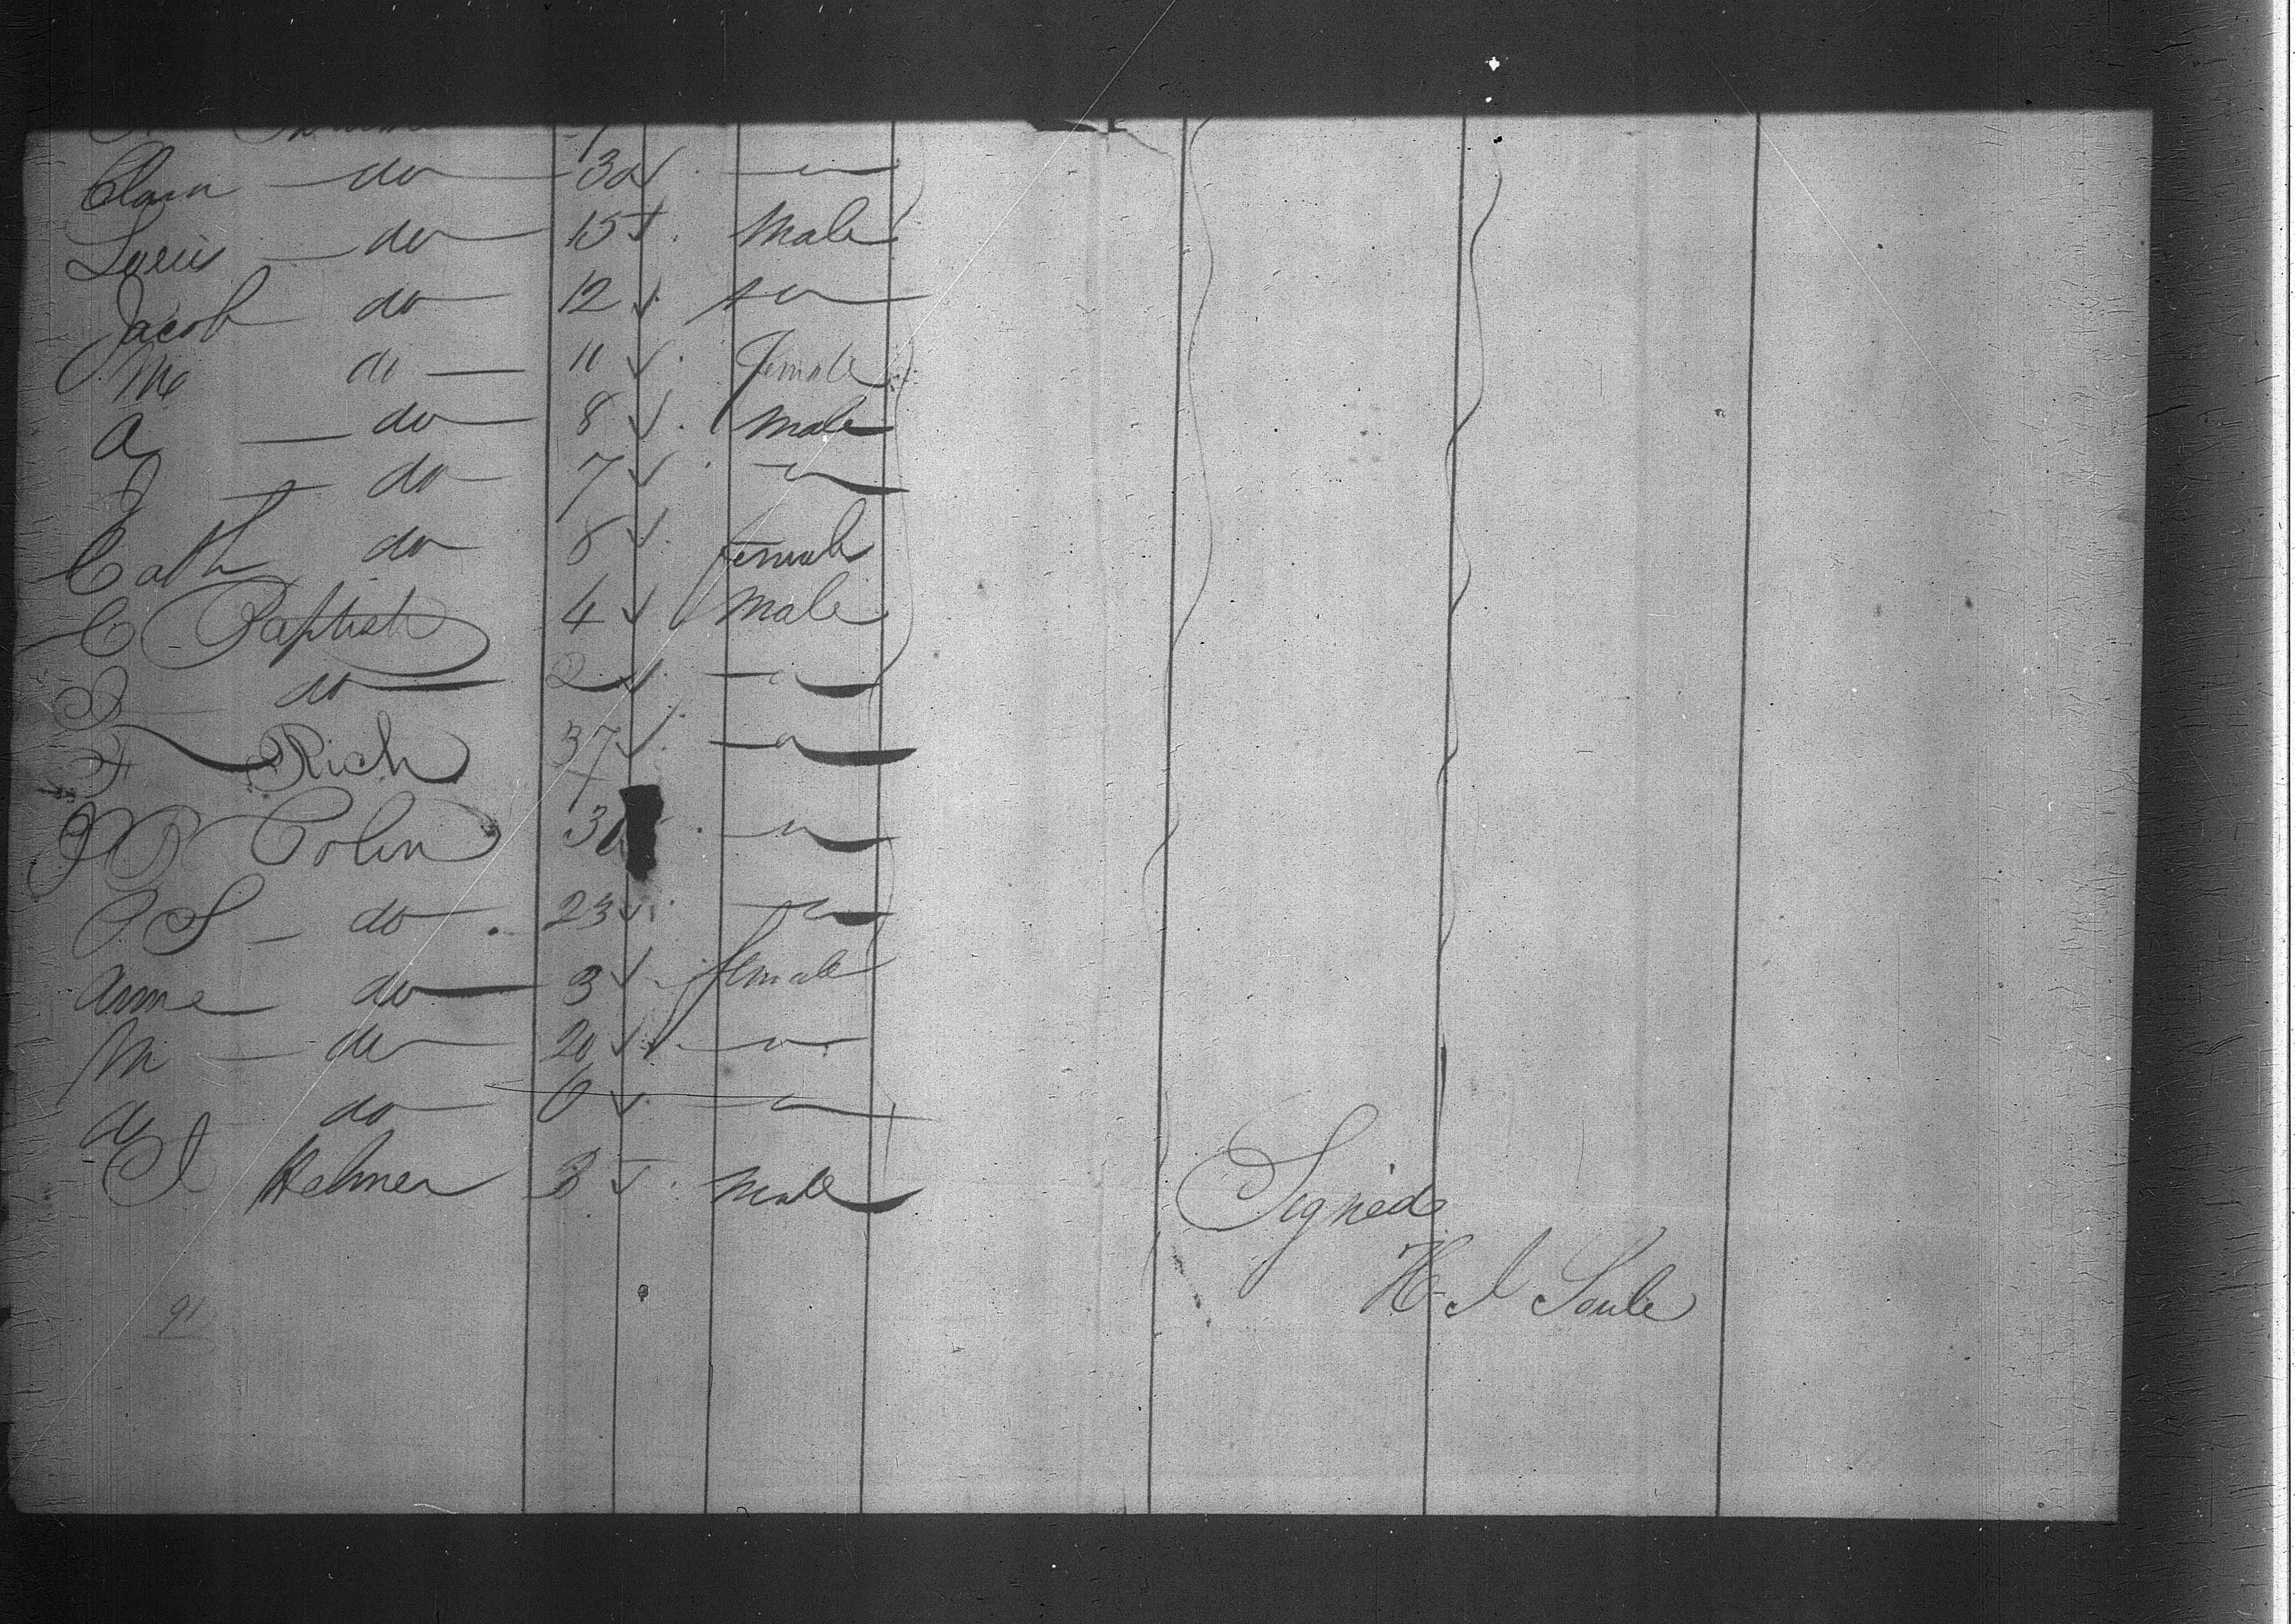 Clara do 30 "
Louis do 15 Male
Jacob do 12 "
M do 11 female
A do 8 Male
J do 7 "
Cath do 8 female
C Baptist 4 Male
J do 2 "
F Rich 37 "
J B Colin 31 "
P S do 23 "
Anne do 3 female
M do 20 "
do 6 "
J Helmer 3 Male
Signed
H J Soule
91